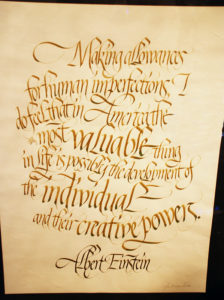 Making allowances
for human imperfections, I
do feel that in America the
most valuable thing
in life is possible, the development of
the individual
and their creative powers.
Albert Einstein